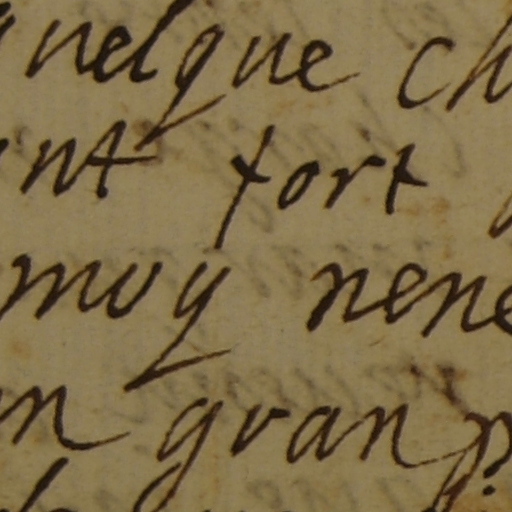 quelque ch
nt fort
moy nene
n gran p